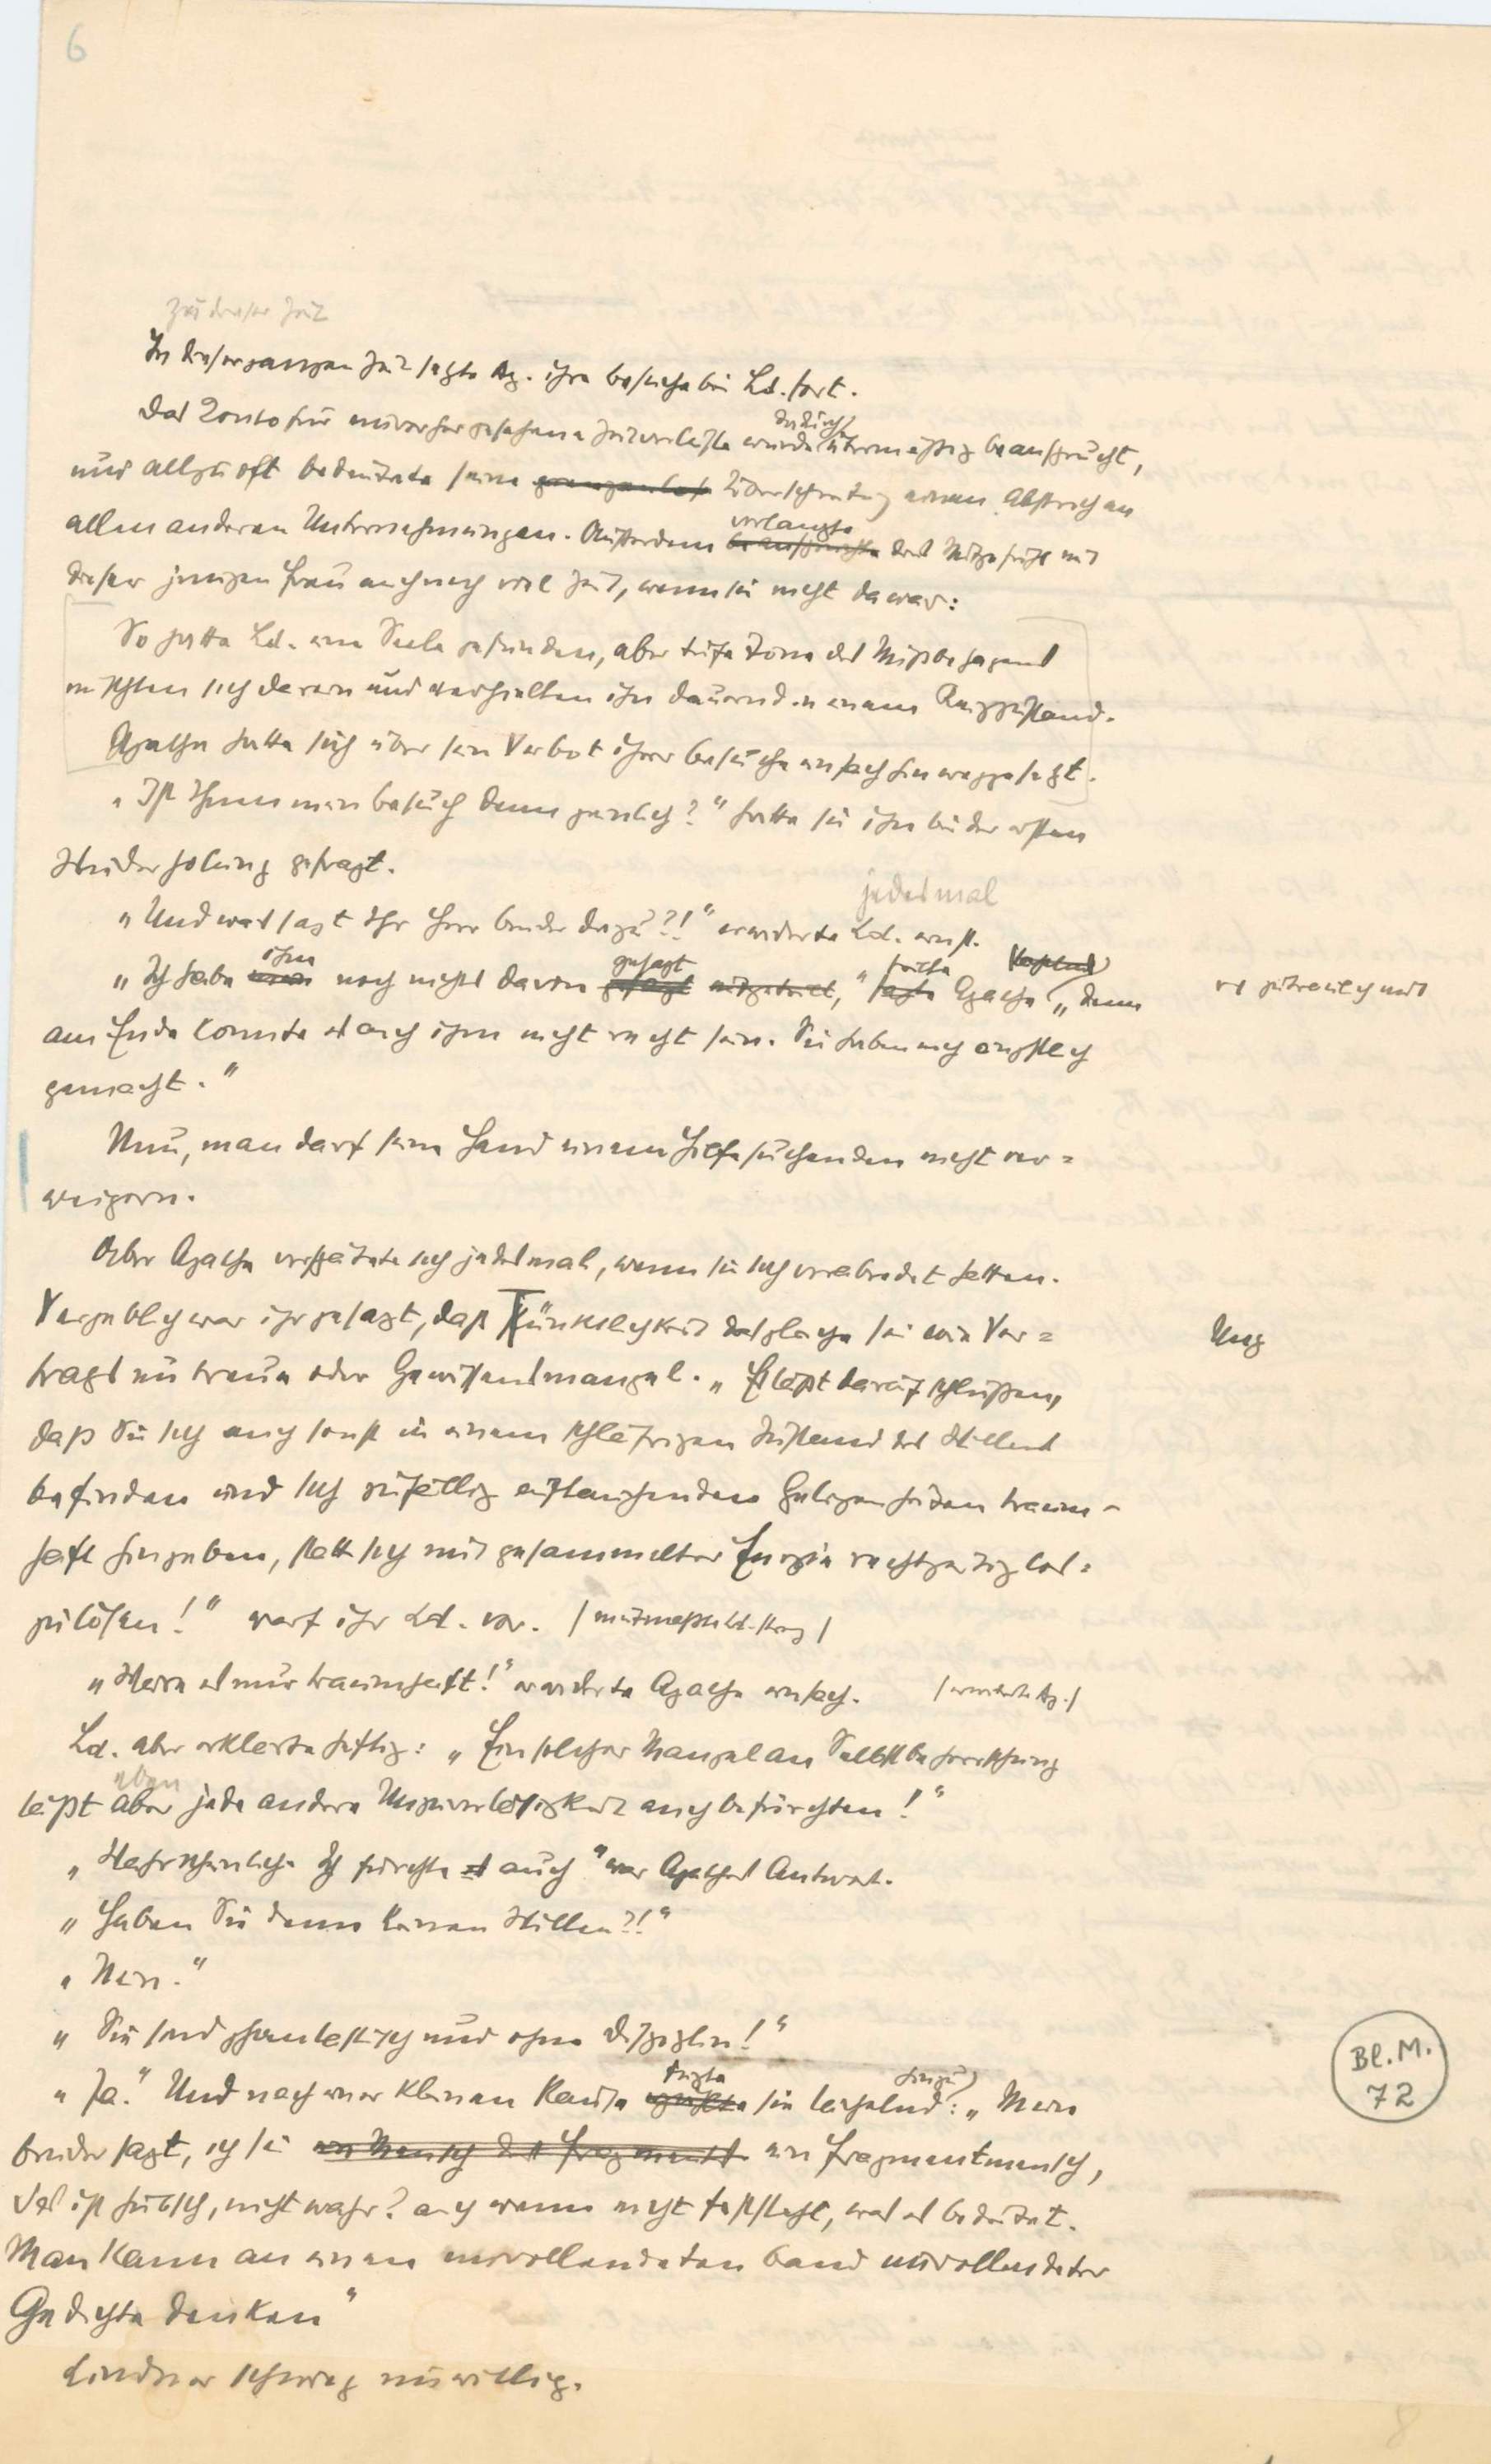 6
Zu dieser Zeit
In dieser ganzen Zeit setzte Ag. ihre Besuche bei Ld. fort.
Das Konto für unvorhergesehene Zeitverluste wurde dadurch übermäßig beansprucht,
und allzu oft bedeutete seine grenzenlose Überschreitung einen Abstrich an
allen anderen Unternehmungen. Außerdem beanspruchte verlangte das Mitgefühl mit
dieser jungen Frau auch noch viel Zeit, wenn sie nicht da war:
So hatte Ld. eine Seele gefunden, aber tiefe Töne des Mißbehagens
mischten sich darein und verhielten ihn dauernd in einem Reizzustand.
Agathe hatte sich über sein Verbot ihrer Besuche einfach hinweggesetzt.
„Ist Ihnen mein Besuch denn peinlich?" hatte sie ihn bei der ersten
Wiederholung gefragt.
„Und was sagt Ihr Herr Bruder dazu?!" erwiderte Ld. jedesmal ernst.
„Ich habe ihm noch nichts davon gesagt mitgeteilt, gesagt" sagte hatte Agathe „denn
am Ende könnte es auch ihm nicht recht sein. Sie haben mich ängstlich
gemacht."
Nun, man darf seine Hand einem Hilfesuchenden nicht ver=
weigern.
Aber Agathe verspätete sich jedesmal, wenn sie sich verabredet hatten.
Vergeblich war ihr gesagt, daß Unpünktlichkeit dasgleiche sei wie Ver=
tragsuntreue oder Gewissensmangel. „Es läßt darauf schließen,
daß Sie sich auch sonst in einem schläfrigen Zustand des Willens
befinden und sich zufällig auftauchenden Gelegenheiten traum-
haft hingeben, statt sich mit gesammelter Energie rechtzeitig los=
zulösen!" warf ihr Ld. vor.
„Wäre es nur traumhaft!" erwiderte Agathe einfach. / erwiderte Ag. /
Ld. aber erklärte heftig: „Ein solcher Mangel an Selbstbeherrschung
läßt aber eben jede andere Unzuverlässigkeit auch befürchten!"
„Wahrscheinlich. Ich fürchte es auch" war Agathes Antwort.
„Haben Sie denn keinen Willen?!"
„Nein."
„Sie sind phantastisch und ohne Disziplin!"
„Ja." Und nach einer kleinen Pause fügte sie lächelnd hinzu: „Mein
Bruder sagt, ich sei ein Mensch des Fragments ein Fragmentmensch,
das ist hübsch, nicht wahr? auch wenn nicht feststeht, was es bedeutet.
Man kann an einen unvollendeten Band unvollendeter
Gedichte denken"
Lindner schwieg unwillig.
Bl. M.
72